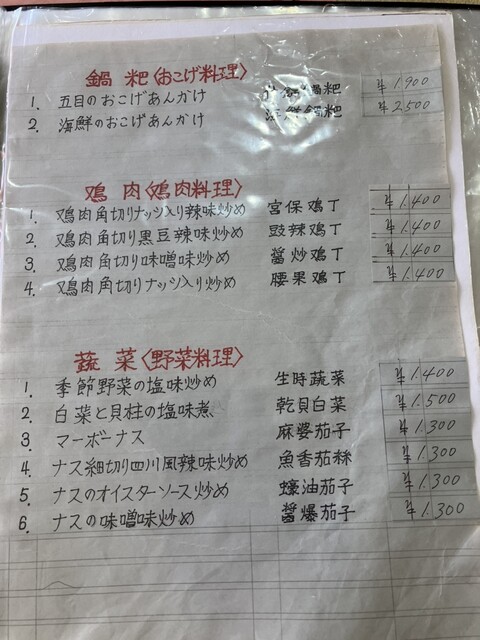 鍋粑〈おこげ料理〉
1. 五目のおこげあんかけ 鍋粑 ¥1,900
2. 海鮮のおこげあんかけ 海鮮鍋粑 ¥2,500
鶏肉〈鶏肉料理〉
1. 鶏肉角切りナッツ入り辣味炒め 宮保鶏丁 ¥1,400
2. 鶏肉角切り黒豆辣味炒め 豉辣鶏丁 ¥1,400
3. 鶏肉角切り味噌味炒め 醤炒鶏丁 ¥1,400
4. 鶏肉角切りナッツ入り炒め 腰果鶏丁 ¥1,400
蔬菜〈野菜料理〉
1. 季節野菜の塩味炒め 生時蔬菜 ¥1,400
2. 白菜と貝柱の塩味煮 乾貝白菜 ¥1,500
3. マーボーナス 麻婆茄子 ¥1,300
4. ナス細切り四川風辣味炒め 魚香茄絲 ¥1,300
5. ナスのオイスターソース炒め 蠔油茄子 ¥1,300
6. ナスの味噌味炒め 醤爆茄子 ¥1,300